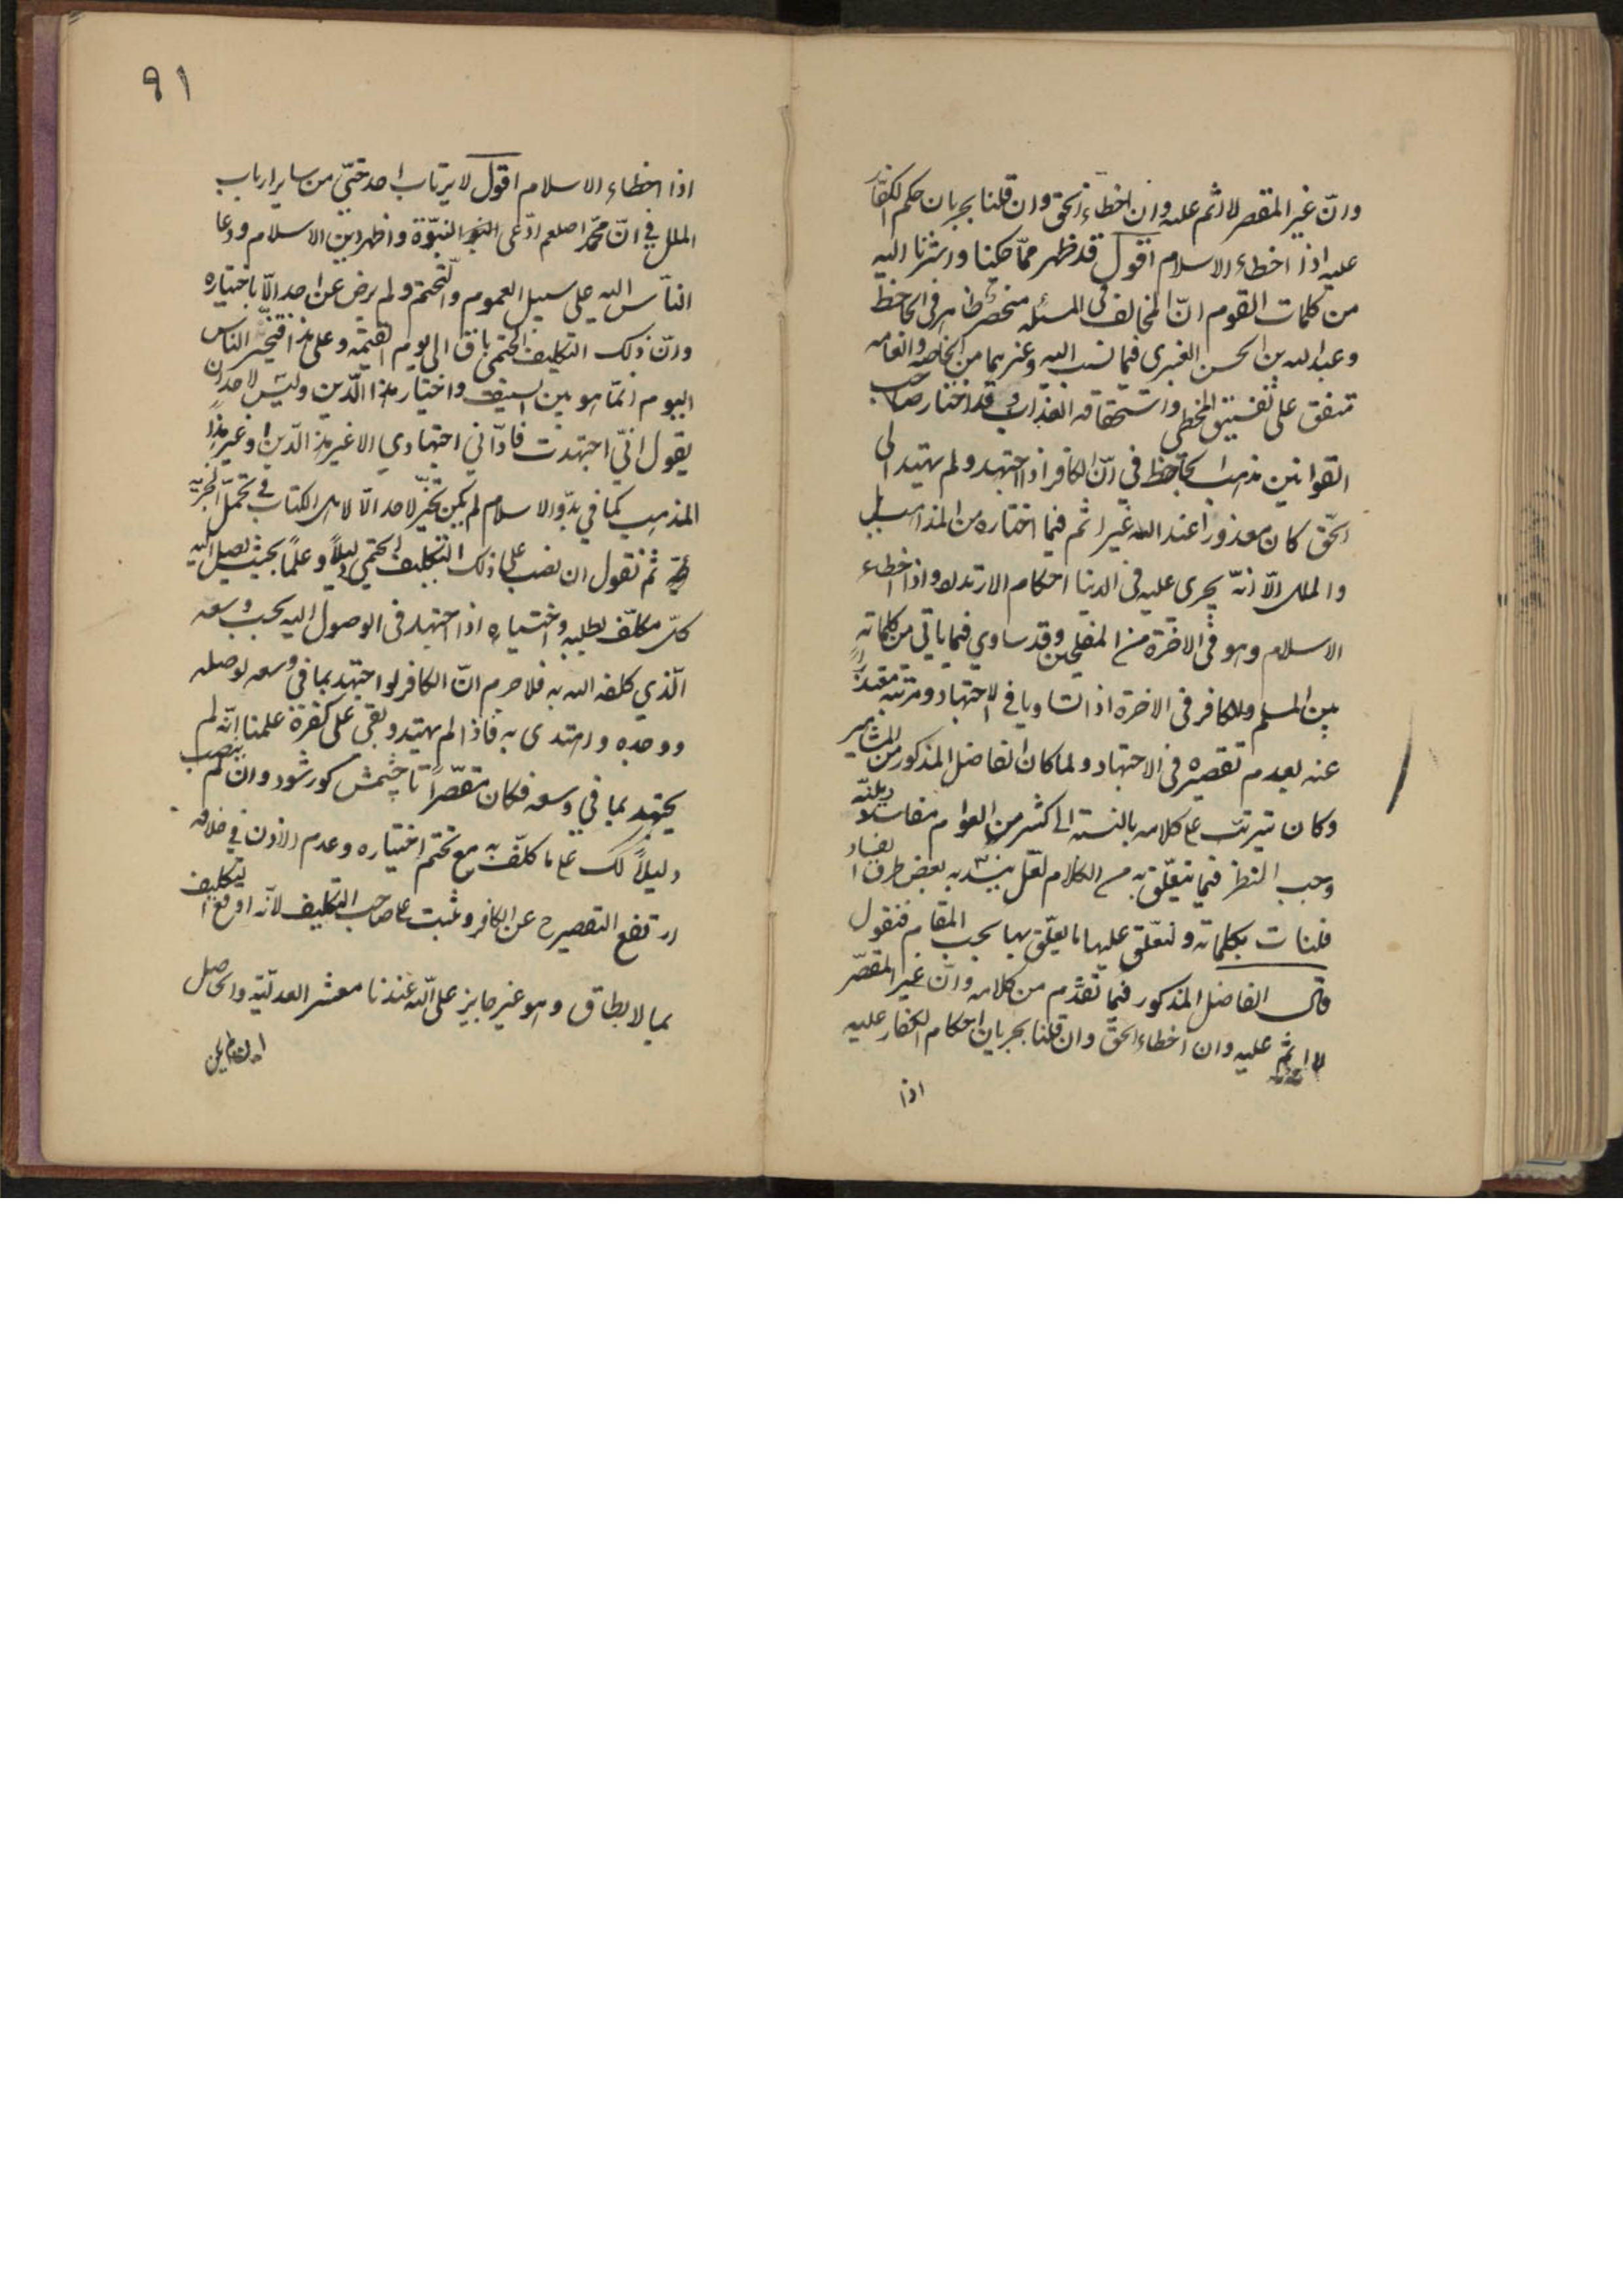 وانّ غير المقصر لا اثم عليه وان اخطاء الحق وان قلنا بجريان حكم الكفّار
عليه اذا اخطاء الاسلام اقول قد ظهر ممّا حكينا واشرنا اليه
من كلمات القوم انّ المخالف فى المسئله منحصر ظاهر فى الجاحظ
وعبد الله بن الحسن العنبرى فيما نسب اليه وغيرهما من الخاصه والعامه
متفق على تفسيق المخطى واستحقاقه العذاب وقد اختار صاحب
القوانين مذهب الجاحظ في انّ الكافر اذا اجتهد ولم يهتد الى
الحّق كان معذوراً عند الله غير اثم فيما اختاره من المذاهب
والملل الاّ انّه يجرى عليه فى الدنيا احكام الارتداد واذا اخطاء
الاسلام وهو فى الاخرة من المفلحين وقد ساوي فيما ياتي من كلماته
بين المسلم والكافر فى الاخرة اذا تساويا في الاجتهاد ومرتبته معتذراً
عنه بعدم تقصيره فى الاجتهاد ولما كان الفاضل المذكور من المشاهير
وكان يترتب على كلامه بالنسبة الى كثير من العوام مفاسد دينيّه
وجب النظر فيما يتعلّق به من الكلام لعلّ ينسدّ به بعض طرق الفساد
فلنات بكلماته ولنعلّق عليها ما يعلّق بها بحسب المقام فنقول
قال الفاضل المذكور فيما تقدّم من كلامه وانّ غير المقصّر
لا اثم عليه وان اخطاء الحقّ وان قلنا بجريان احكام الكفار عليه
اذا
٩١
اذا اخطاء الاسلام اقول لا يرتاب احد حتىّ من ساير ارباب
الملل في انّ محمّدا صلعم ادّعى النبوّة واظهر دين الاسلام ودعا
الناّس اليه على سبيل العموم والتّحتم ولم يرض عن احد الاّ باختياره
وانّ ذلك التكليف الحتمي باق الى يوم القيمه وعلى هذا فتخيّر الناس
اليوم انمّا هو بين السيف واختيار هذا الّدين وليس لاحد ان
يقول انيّ اجتهدت فادّاني اجتهادي الا غير هذا الّدين او غير هذا
المذهب كما في بدّو الاسلام لم يكن تخيّر لاحد الاّ لاهل الكتاب في تحمّل الجزيّه
ثم نقول ان نصب على ذلك التكليف الحتمي دليلاً وعلمًا بحيث يصل اليه
كلّ مكلّف بطلبه واختياره اذا اجتهد فى الوصول اليه بحسب وسعه
الّذي كلفه الله به فلا جرم انّ الكافر لو اجتهد بما في وسعه لوصله
ووجده واهتدى به فاذا لم يهتد وبقى على كفره علمنا انّه لم
يجتهد بما في وسعه فكان مقصّراً تا چشمش كور شود وان لم ينصب
دليلاً لك على ما كلّف به مع تحتم اختياره وعدم الاذن في خلافه
ارتفع التقصير ح عن الكافر وثبت على صاحب التكليف لانّه اوقع التكليف
بما لا يطاق وهو غير جايز على اللّه عندنا معشر العدليّة والحاصل